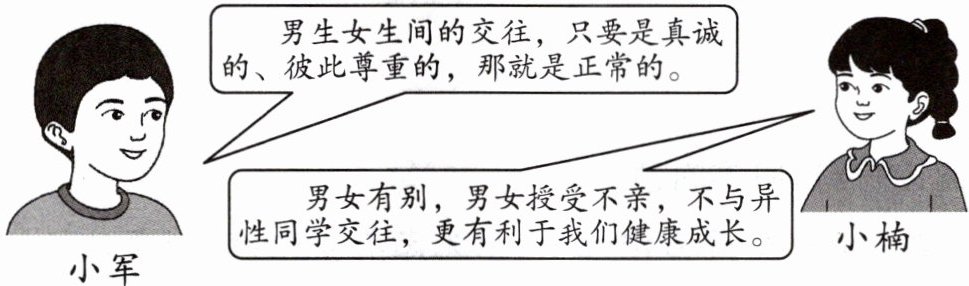 男生女生间的交往，只要是真诚
的、彼此尊重的，那就是正常的。
男女有别，男女授受不亲，不与异
性同学交往，更有利于我们健康成长。
小军
小楠